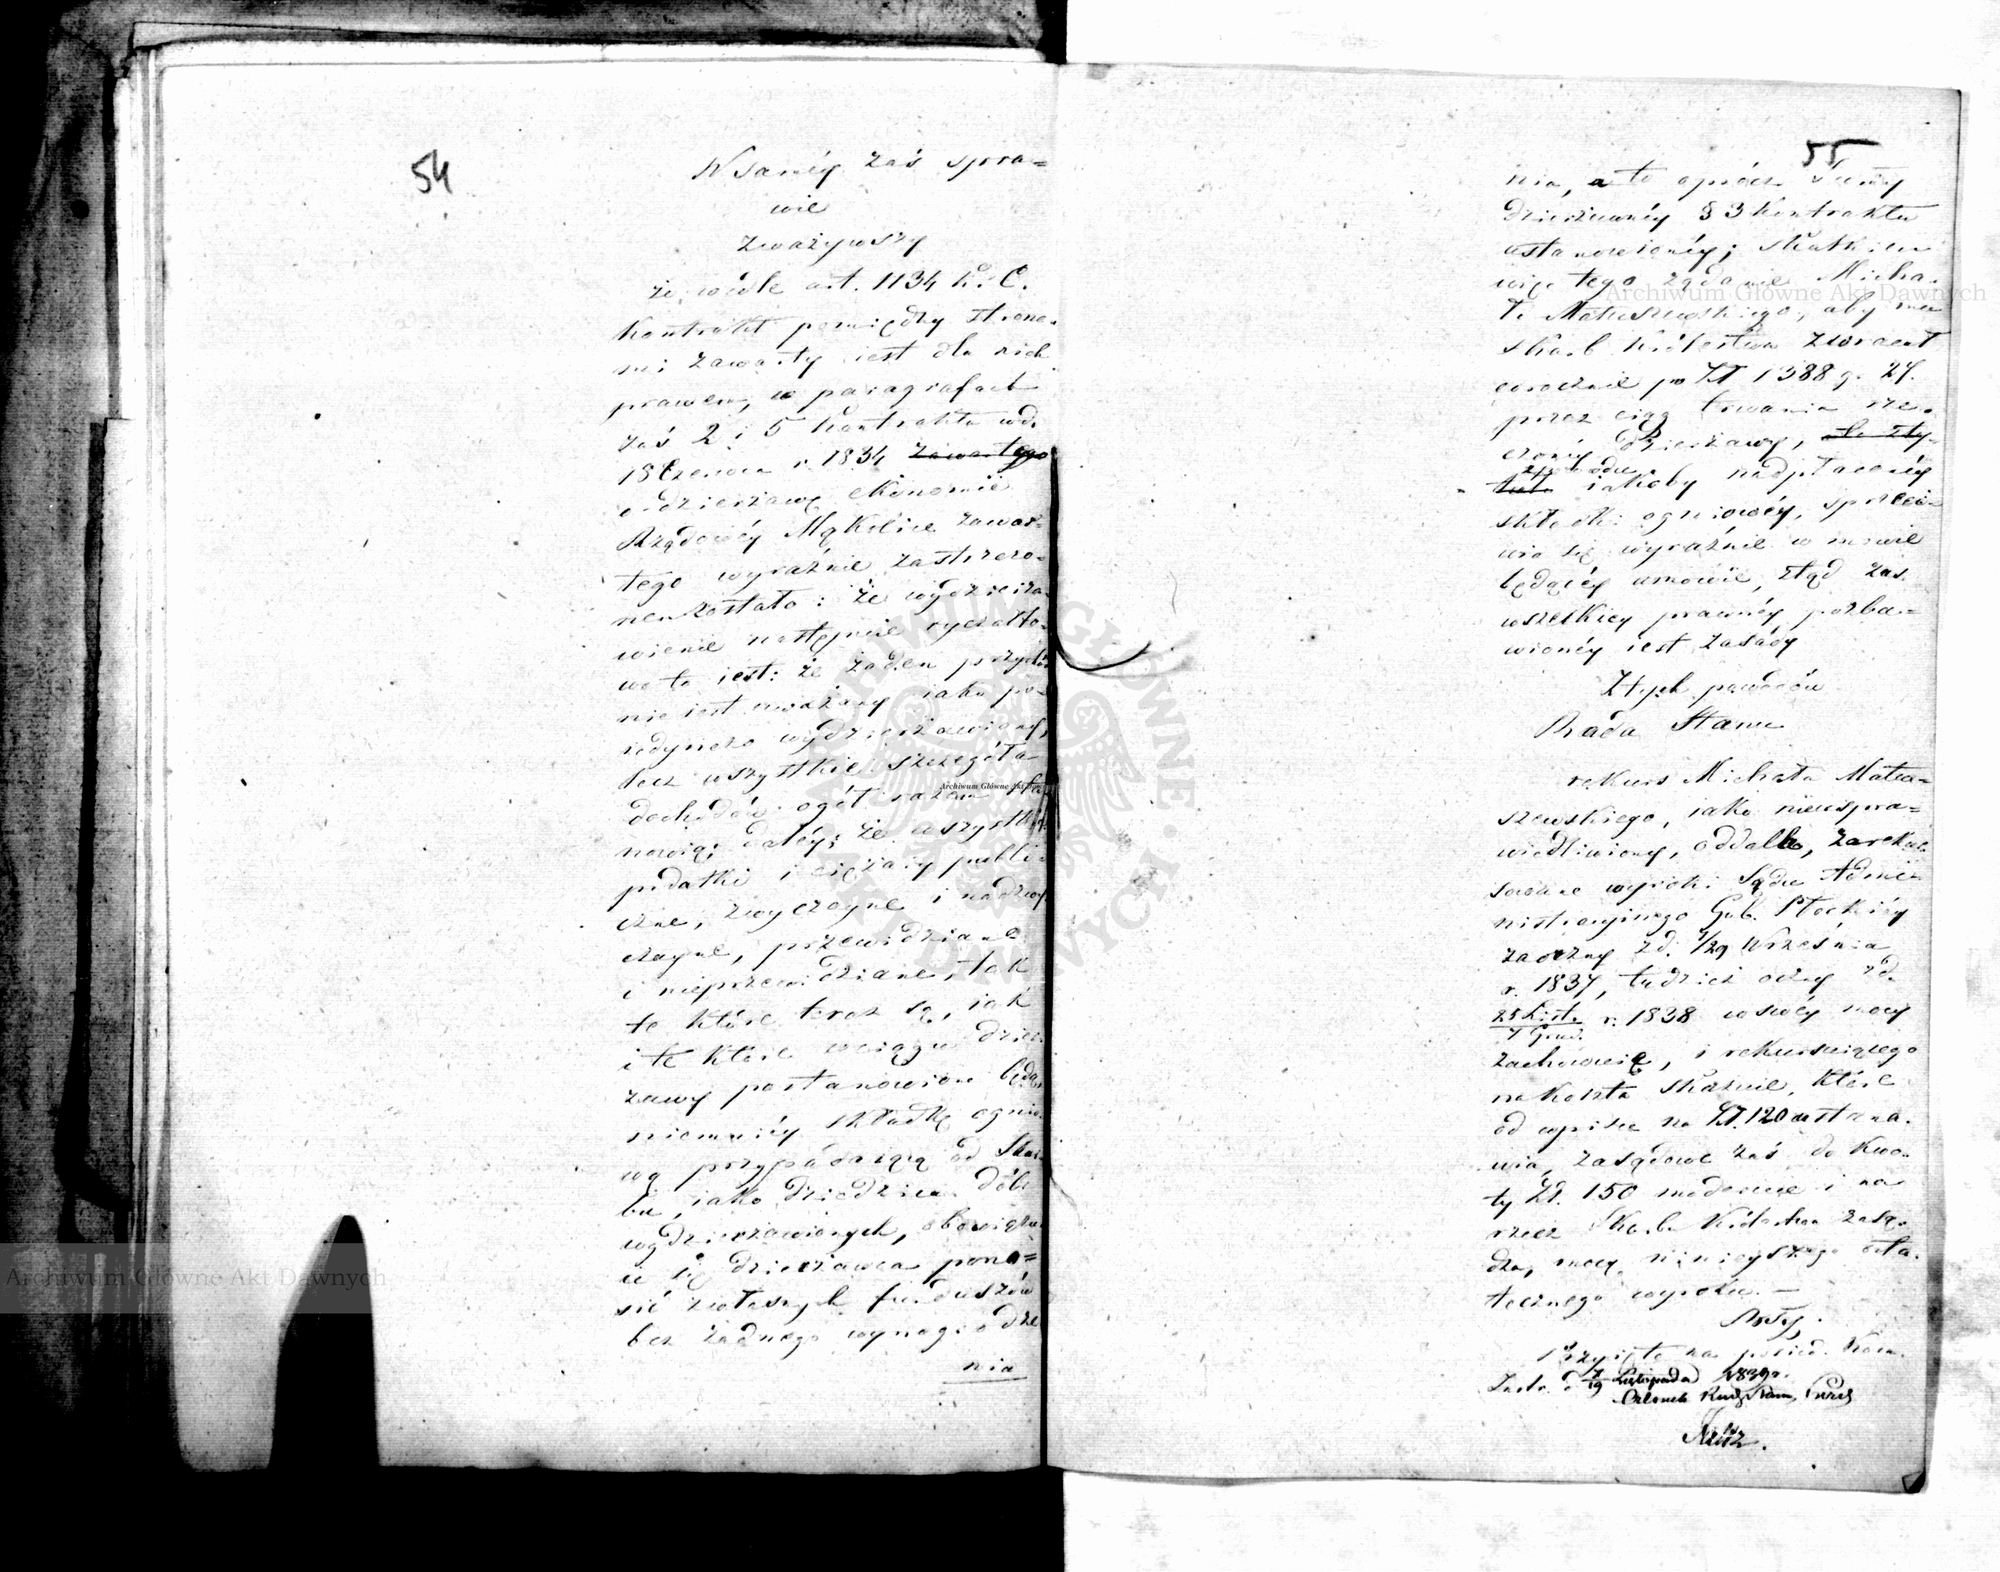 54
W saméy zaś spra=
wie
zważywszy
że wedle art. 1134 k. C.
kontrakt pomiędzy strona-
mi zawarty iest dla nich
prawem, w paragrafach
zaś 2 i 5 kontraktu wd.
18 Czerwca r. 1834 zawartego
o dzierżawę ekonomii
Rządowéy Mąkolice zawar-
tego wyraźnie zastrzeżo-
nem zostało: że wydzierża-
wienie następuie ryczałto-
wo to iest: że żaden przychód
nie iest uważany iako po-
iedynczo wydzierżawiony,
lecz wszystkie szczegóły
dochodów ogół razem sta
nowią; daléy: że wszystkie
podatki i ciężary publi-
czne, zwyczayne i nadzwy
czayne, przewidziane
i nieprzewidziane, tak
te które teraz są, iak
i te które w ciągu dzier
żawy postanowione będą,
niemniéy składkę ognio
wą przypadaiącą od Skar-
bu, iako dziedzica dóbr
wydzierżawionych, obowiązu
ie się dzierżawca pono=
sić z własnych funduszów
bez żadnego wynagrodze
nia
55
nia, a to oprócz Summy
dzierżawnéy § 3 kontraktu
ustanowionéy; skutkiem
więc tego żądanie Micha-
ła Mateuszewskiego, aby mu
Skarb Królestwa zwracał
corocznie po Zł 1388 gr. 24.
przez ciąg trwania rze-
czonéy dzierżawy,
iakoby nadpłaconéy
składki ogniowéy, sprzeci-
wia się wyraźnie w mowie
będącéy umowie, ztąd zaś
wszelkiey prawnéy pozba=
wionéy iest zasady
Z tych powodów
Rada Stanu
rekurs Michała Mateu=
szewskiego, iako niespra=
wiedliwiony, oddala, zarekur
sowane wyroki Sądu Admi-
nistracyinego Gub. Płockiéy
zaoczny z d. /29 Września
r. 1837, tudzież oczny z d.
25 List. r. 1838 w swéy mocy
7 Grud.
zachowuie, i rekursuiącego
na koszta skazuie, które
od wpisu na Zł. 120 ustana-
wia, zasądowe zaś do kwo-
ty Zł. 150 moderuie i na
rzecz Skarbu Królestwa zasą-
dza, mocą ninieyszego osta-
tecznego wyroku. —
Przyięto na posied. Kom.
Instr. d 7/19 Listopada 1839 r.
Członek Rady Stanu, Prezes